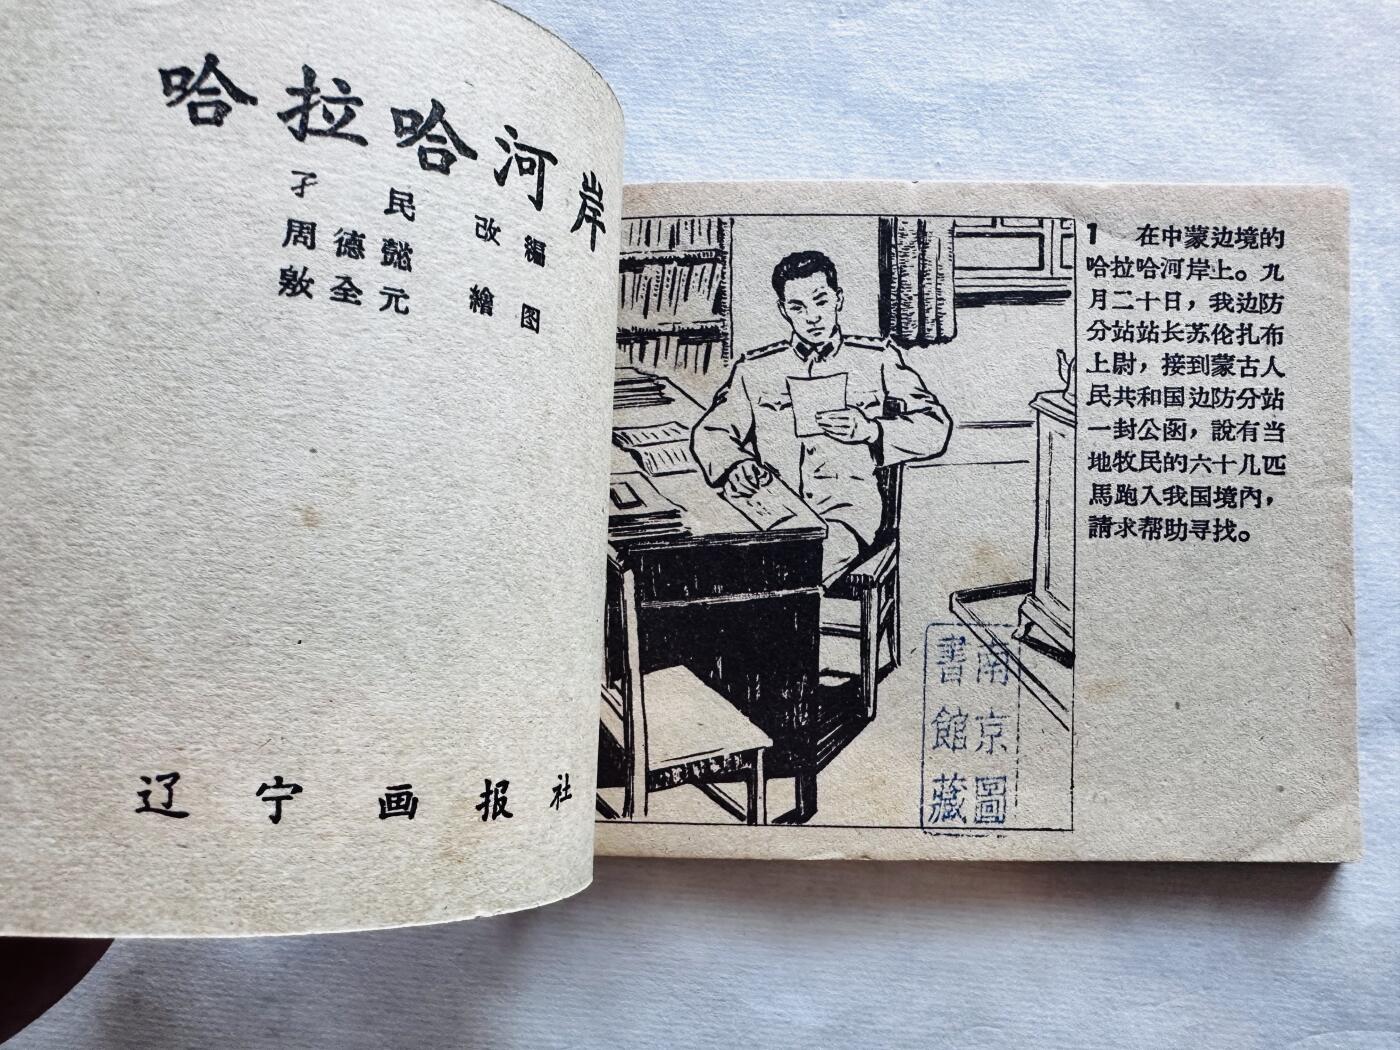 哈拉哈河岸
子民 改編
周德懿
敖全元 繪图
辽宁画报社
1 在中蒙边境的
哈拉哈河岸上。九
月二十日，我边防
分站站长苏伦扎布
上尉，接到蒙古人
民共和国边防分站
一封公函，說有当
地牧民的六十几匹
馬跑入我国境內，
請求帮助寻找。
南京圖
書館藏